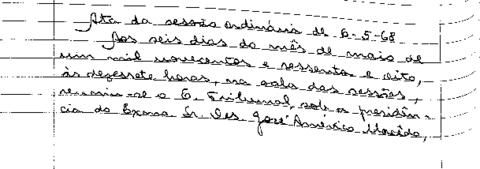 Ata da sessão ordinária de 6-5-68
Aos seis dias do mês de maio de
um mil novecentos e sessenta e oito,
às dezessete horas, na sala das sessões,
reuniu-se o E. Tribunal, sob a presidên-
cia do Exmo. Sr. Des. José Américo Macêdo,